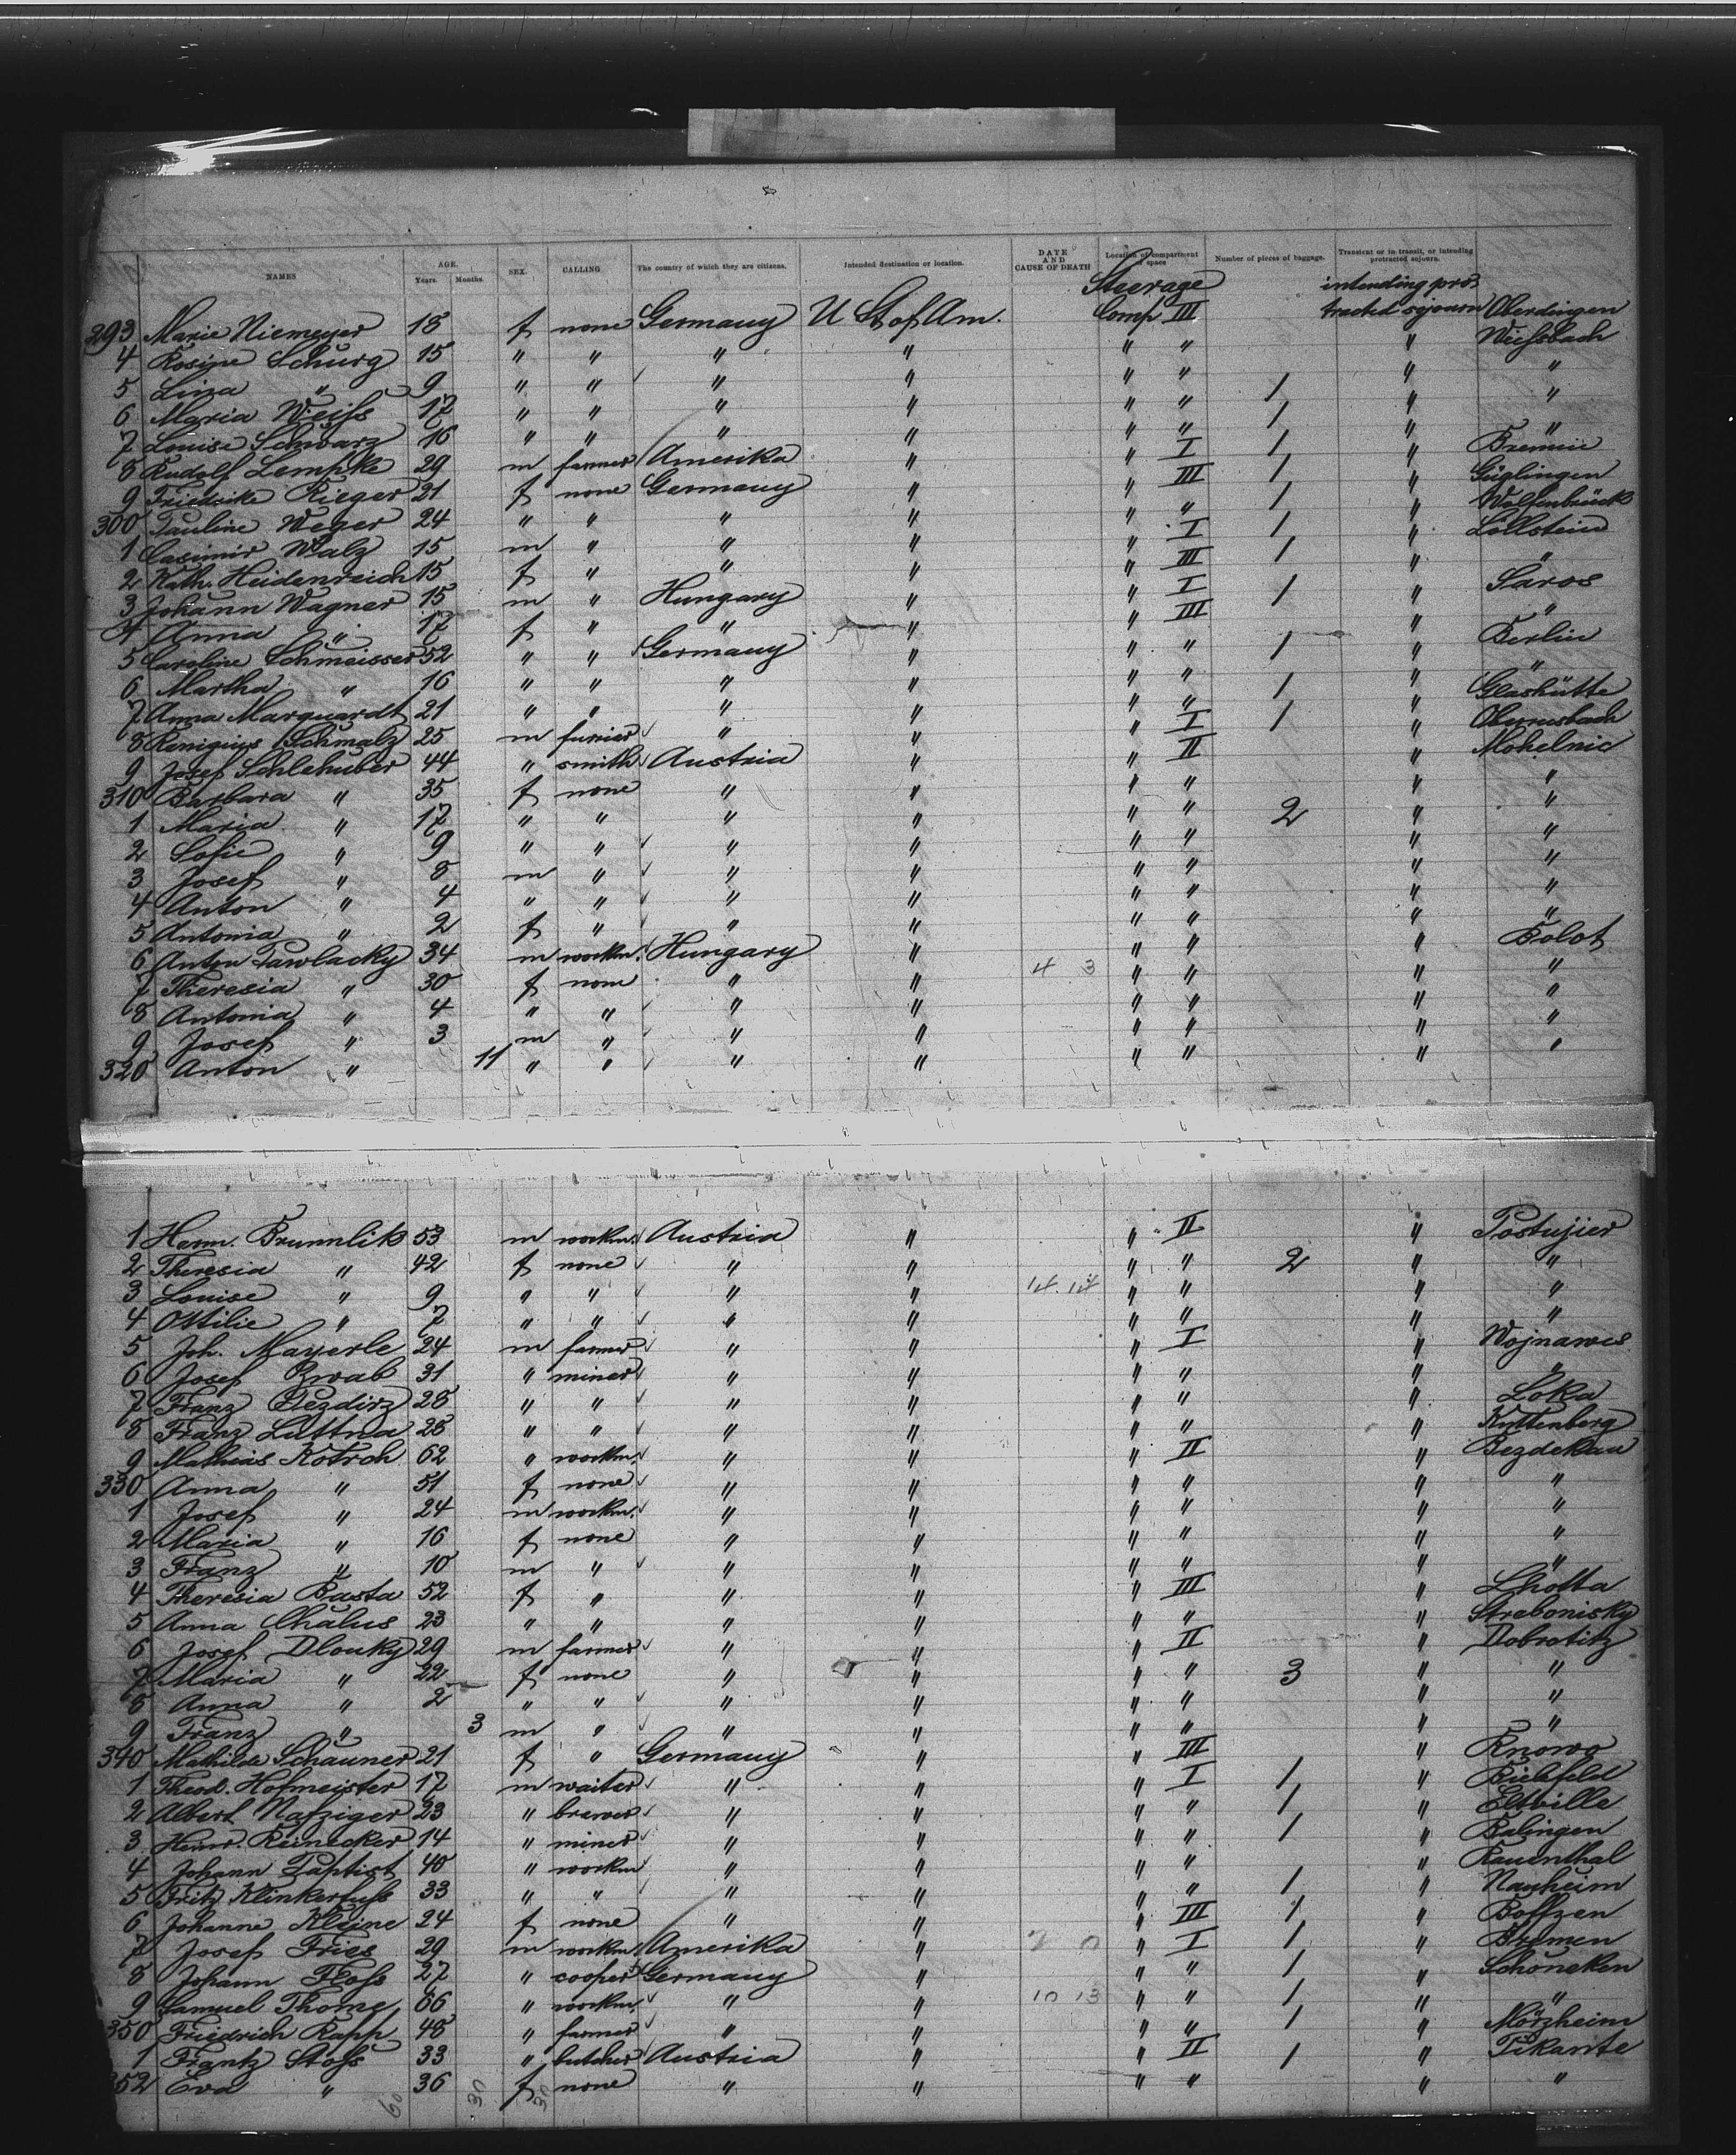 NAMES AGE. Years. Months. SEX. CALLING The country of which they are citizens. Intended destination or location. DATE AND CAUSE OF DEATH Location of compartment or space Number of pieces of baggage. Transient or in transit, or intending protracted sojourn.
Steerage intending pro-
293 Marie Niemeyer 18 f none Germany U St of Am. Comp III tracted sojourn Oberdingen
4 Rosine Schurg 15 " " " " " " " Weifsbach
5 Lina " 9 " " " " " " 1 " "
6 Maria Weifs 17 " " " " " " 1 " "
7 Louise Schwarz 16 " " " " " " 1 " "
8 Rudolf Lempke 29 m farmer Amerika " " I 1 "
9 Friedrike Rieger 21 f none Germany " " III 1 " Güglingen
300 Pauline Weger 24 " " " " " " 1 " Wolfenbrück
1 Casimir Walz 15 m " " " " I 1 " Löllstein
2 Kath. Heidenreich 15 f " " " " III " "
3 Johann Wagner 15 m " Hungary " " I 1 " Saros
4 Anna " 17 f " " " " III " "
5 Caroline Schmeisser 52 " " Germany " " " 1 " Berlin
6 Martha " 16 " " " " " " " "
7 Anna Marquardt 21 " " " " " " 1 " Glashütte
8 Remigius Schmalz 25 m furrier " " " I 1 "
9 Josef Schlehuber 44 " smith Austria " " II " Mohelnic
310 Barbara " 35 f none " " " " " "
1 Maria " 17 " " " " " " 2 " "
2 Sofie " 9 " " " " " " " "
3 Josef " 8 m " " " " " " "
4 Anton " 4 " " " " " " " "
5 Antonia " 2 f " " " " " " "
6 Anton Pawlacky 34 m workm. Hungary " " " " Bolot
7 Theresia " 30 f none " " 4 3 " " " "
8 Antonia " 4 " " " " " " " "
9 Josef " 3 m " " " " " " "
320 Anton " 11 " " " " " " " "
1 Herm. Brumlik 53 m workm. Austria " " II " Postujier
2 Theresia " 42 f none " " " " 2 " "
3 Louise " 9 " " " " 14. 14 " " " "
4 Ottilie " 7 " " " " " " " "
5 Joh. Mayerle 24 m farmer " " " I " Wojnawes
6 Josef Zwab 31 " miner " " " " " "
7 Franz Pezdirz 28 " " " " " " " Loka
8 Franz Luttna 28 " " " " " " " Kuttenberg
9 Mathias Kotroh 62 " workm. " " " II " Bezdekau
330 Anna " 51 f none " " " " " "
1 Josef " 24 m workm. " " " " " "
2 Maria " 16 f none " " " " " "
3 Franz " 10 m " " " " " " "
4 Theresia Basta 52 f " " " " III " Lhotta
5 Anna Chalus 23 " " " " " " " Strebonisky
6 Josef Dlouky 29 m farmer " " " II " Dobrotitz
7 Maria " 22 f none " " " " 3 " "
8 Anna " 2 " " " " " " " "
9 Franz " 3 m " " " " " " "
340 Mathilde Schauner 21 f " Germany " " III " Knowo
1 Theod. Hofmeister 17 m waiter " " " I 1 " Bielefeld
2 Albert Nafziger 23 " brewer " " " " 1 " Eltville
3 Heinr. Reinecker 14 " miner " " " " 1 " Balingen
4 Johann Baptist 40 " workm " " " " " Rauenthal
5 Fritz Klinkerfufs 33 " " " " " " 1 " Nauheim
6 Johanne Kleine 24 f none " " " III 1 " Boffzen
7 Josef Fries 29 m workm. Amerika " 7 0 " I 1 " Bremen
8 Johann Flofs 27 " cooper Germany " " " 1 " Schöneken
9 Samuel Thome 66 " workm. " " 10 13 " " 1 " "
350 Friedrich Rapp 48 " farmer " " " " 1 " Mörzheim
1 Frantz Stofs 33 " butcher Austria " " II 1 " Pikante
352 Eva " 36 f none " " " " " "
60 30 30